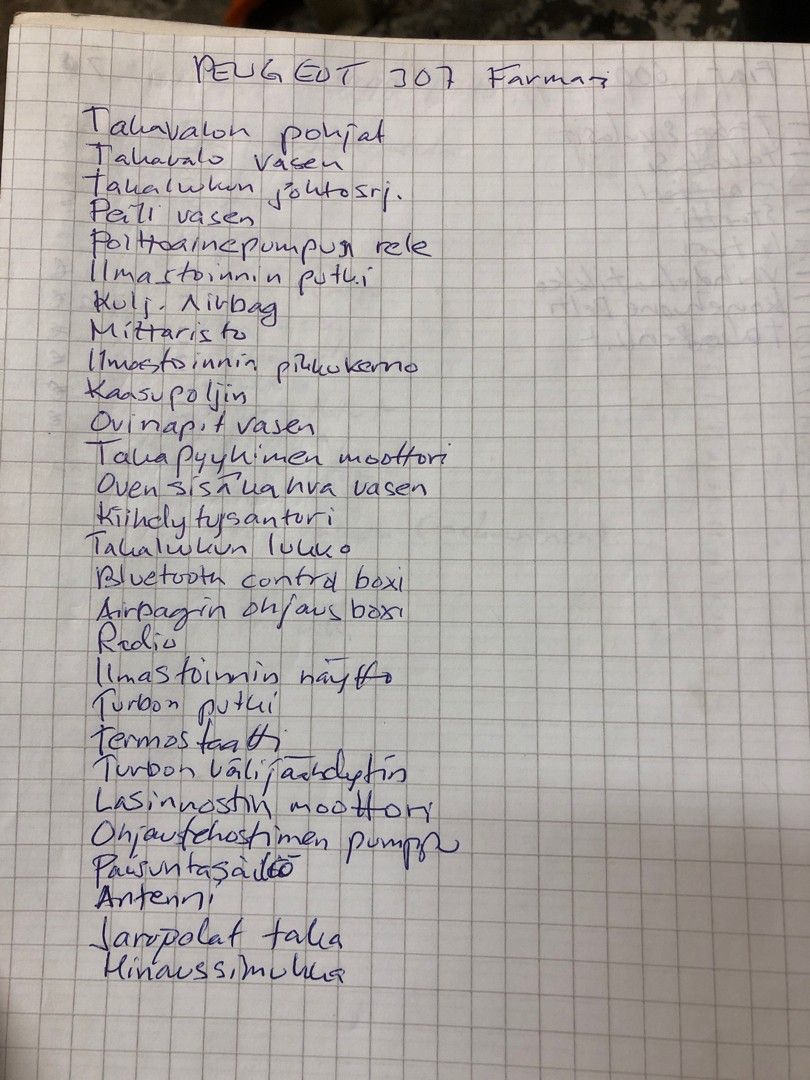 PEUGEOT 307 Farmari
Takavalon pohjat
Takavalo vasen
Takaluukun johtosrj.
Peili vasen
Polttoainepumpun rele
Ilmastoinnin putki
Kulj. Airbag
Mittaristo
Ilmastoinnin pikkukenno
Kaasupoljin
Ovinapit vasen
Takapyyhimen moottori
Oven sisäkahva vasen
Kiihdytysanturi
Takaluukun lukko
Bluetooth control boxi
Airpagin ohjaus boxi
Radio
Ilmastoinnin näyttö
Turbon putki
Termostaatti
Turbon välijäähdytin
Lasinnostin moottori
Ohjaustehostimen pumppu
Paisuntasäiliö
Antenni
Jarrupalat taka
Hinaussilmukka